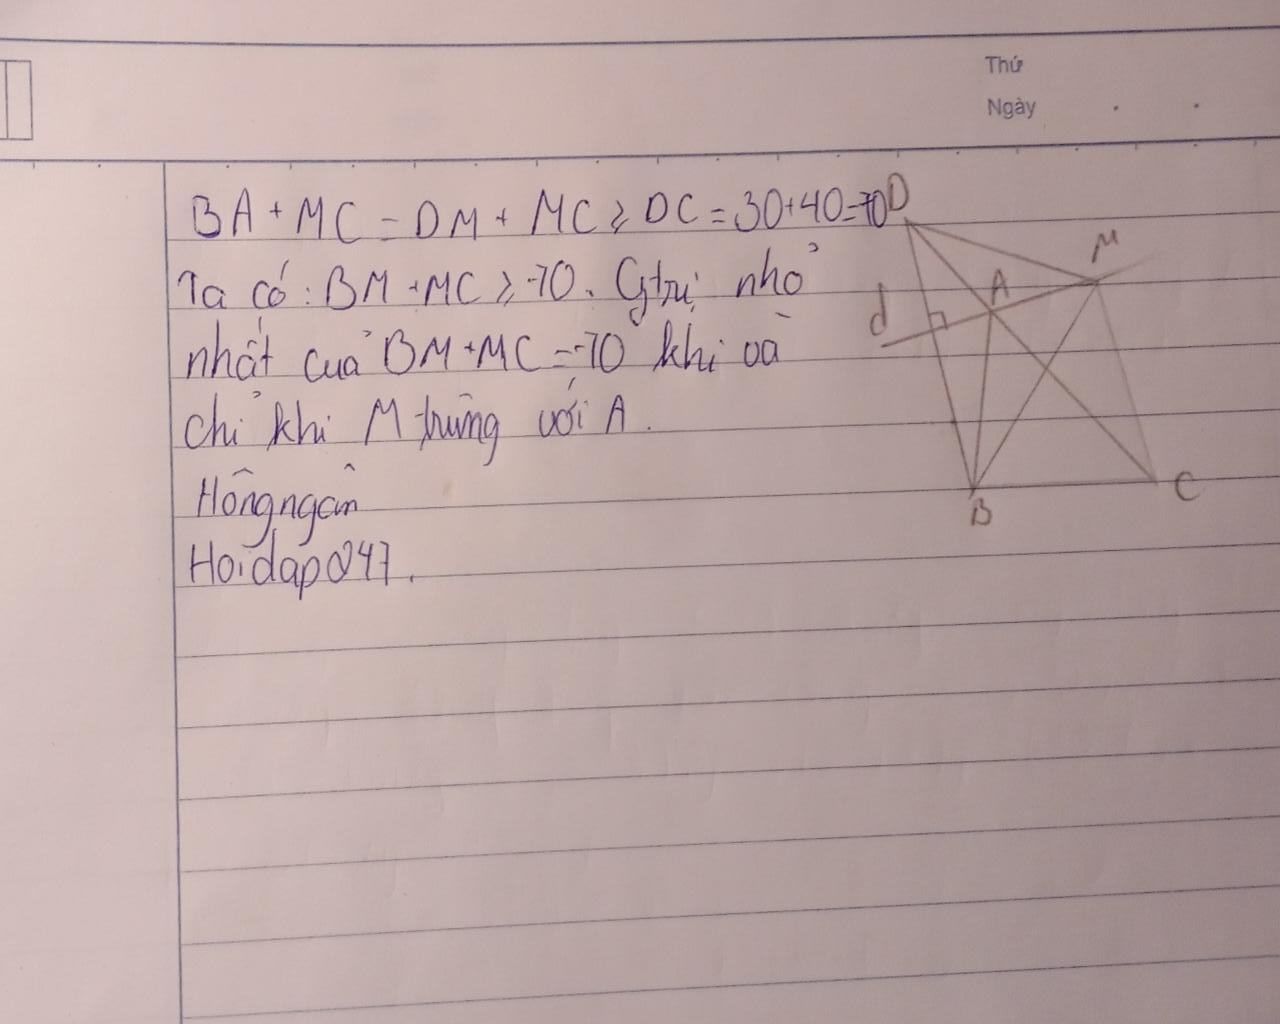 Thứ
Ngày
BA + MC = DM + MC ≥ DC = 30+40=70
Ta có: BM + MC ≥ 70. Gtrị nhỏ
nhất của BM + MC = 70 khi và
chỉ khi M trùng với A.
Hôngngân
Hoidap247.
D
M
A
d
B
C